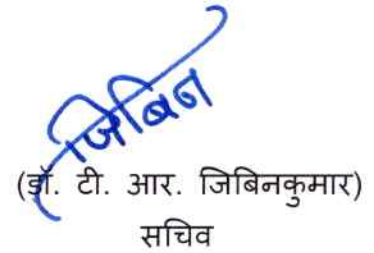 जिबिन
(डॉ. टी. आर. जिबिनकुमार)
सचिव